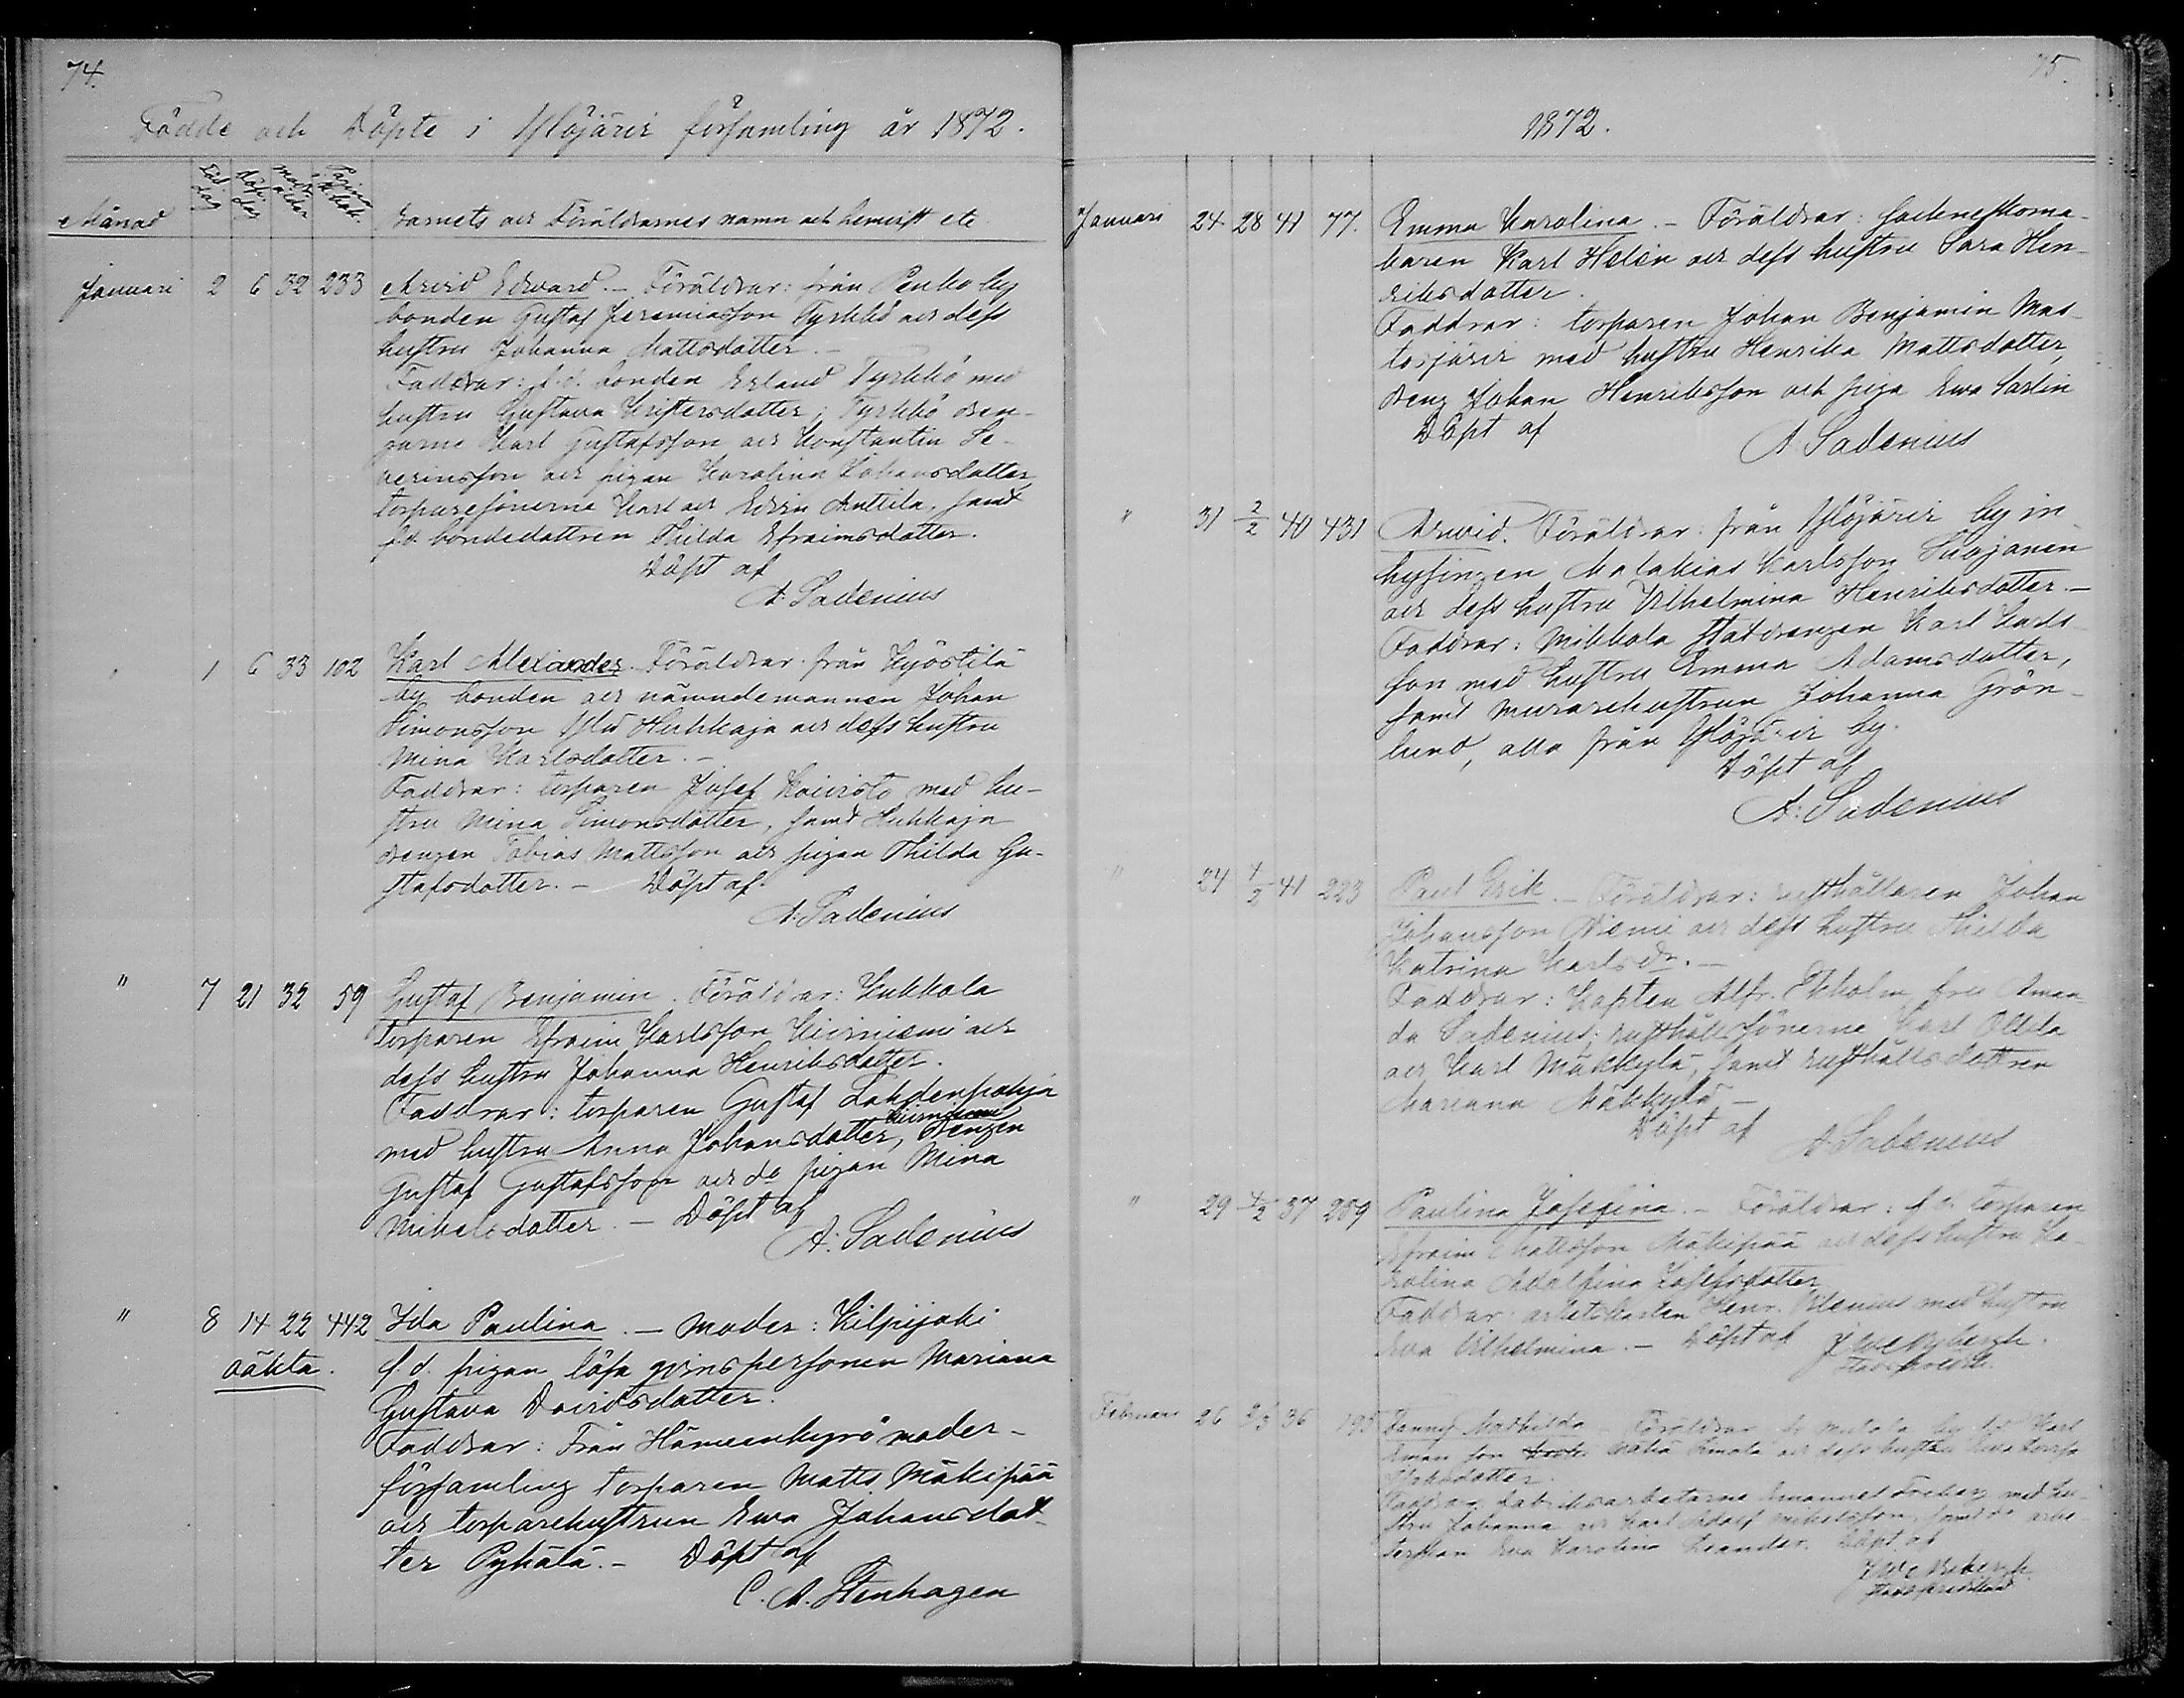 74.
Födde och Döpte i Ylöjärvi församling år 1872.
Månad
Född dag
Döp. dag
Mod. ålder
Pagina i K.bok.
Barnets och Föräldrarnes namn och hemvist etc
Januari 2 6 32 233 Arvid Edvard. - Föräldrar: från Penko by
bonden Gustaf Jeremiasson Tyrkkö och dess
hustru Johanna Mattsdotter. -
Faddrar: f.d. bonden Erland Tyrkkö med
hustru Gustava Kristersdotter; Tyrkkö dren-
garne Karl Gustafsson och Konstantin Se-
verinsson och pigan Karolina Johansdotter,
torparesönerna Karl och Edvin Anttila, samt
f.d. bondedottren Thilda Efraimsdotter.
Döpt af
A. Sadenius
" 1 6 33 102 Karl Alexander. Föräldrar från Kyöstilä
by bonden och nämndemannen Johan
Simonsson Yli Hukkaja och dess hustru
Mina Karlsdotter. -
Faddrar: torparen Josef Koivisto med hu-
stru Mina Simonsdotter, samt Hukkaja
drengen Tobias Mattsson och pigan Thilda Gu-
stafsdotter. - Döpt af
A. Sadenius
" 7 21 32 59 Gustaf Benjamin. Föräldrar: Kukkola
torparen Efraim Karlsson Kiviniemi och
dess hustru Johanna Henriksdotter.
Faddrar: torparen Gustaf Lahdenpohja
med hustru Anna Johansdotter, Kiviniemi drengen
Gustaf Gustafsson och do pigan Mina
Mikelsdotter. - Döpt af
A. Sadenius
" 8 14 22 442 Ida Paulina. - Moder: Kilpijoki
oäkta. f.d. pigan lösa qvinspersonen Mariana
Gustava Davidsdotter.
Faddrar: Från Hämeenkyrö moder-
församling torparen Matts Mäkipää
och torparehustrun Eva Johansdot-
ter Pyhälä. - Döpt af
C. A. Stenhagen
75.
1872.
Januari 24 28 41 77. Emma Karolina. - Föräldrar: sockneskoma-
karen Karl Helén och dess hustru Sara Hen-
riksdotter.
Faddrar: torparen Johan Benjamin Mas-
tosjärvi med hustru Henrika Mattsdotter,
dreng Johan Henriksson och piga Eva Sarlin
Döpt af
A. Sadenius
" 31 2/2 40 431 Arvid. Föräldrar: från Ylöjärvi by in-
hysingen Malakias Karlsson Suojanen
och dess hustru Vilhelmina Henriksdotter. -
Faddrar: Mikkola statdrengen Karl Karls-
son med hustru Emma Adamsdotter,
samt murarehustrun Johanna Grön-
lund, alla från Ylöjärvi by.
Döpt af
A. Sadenius
" 24 4/2 41 223 Paul Erik. - Föräldrar: rusthållaren Johan
Johansson Niemi och dess hustru Thilda
Katrina Karlsdr. -
Faddrar: Kapten Alfr. Ekholm, fru Aman-
da Sadenius; rusthållssönerne Karl Ollila
och Karl Mäkkylä, samt rusthållsdottren
Mariana Mäkkylä. -
Döpt af
A. Sadenius
" 29 4/2 37 289 Paulina Josefina. - Föräldrar: f.d. torparen
Efraim Mattsson Mäkipää och dess hustru Ka-
rolina Adolfina Josefsdotter
Faddrar: arbetskarlen Henr. Vilenius med hustru
Eva Vilhelmina. - Döpt af
Februari 26 2/3 36 195 Fanny Mathilda Föräldrar fr. Mutala by Karl
och dess hustru Eva
Faddrar, fabriksarbetarne Emanuel Friberg med hu-
stru Johanna och Karl Adolf Mikelsson, samt do arbe-
terskan Eva Karolina Leander. Döpt af